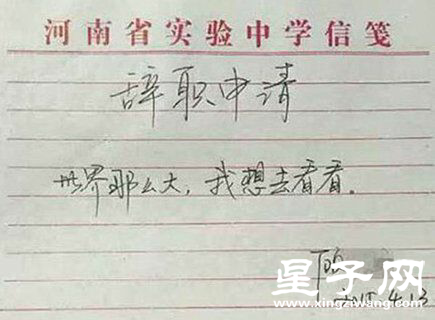 河南省实验中学信笺
辞职申请
世界那么大，我想去看看。
顾
2015.4.13
星子网
www.xingziwang.com